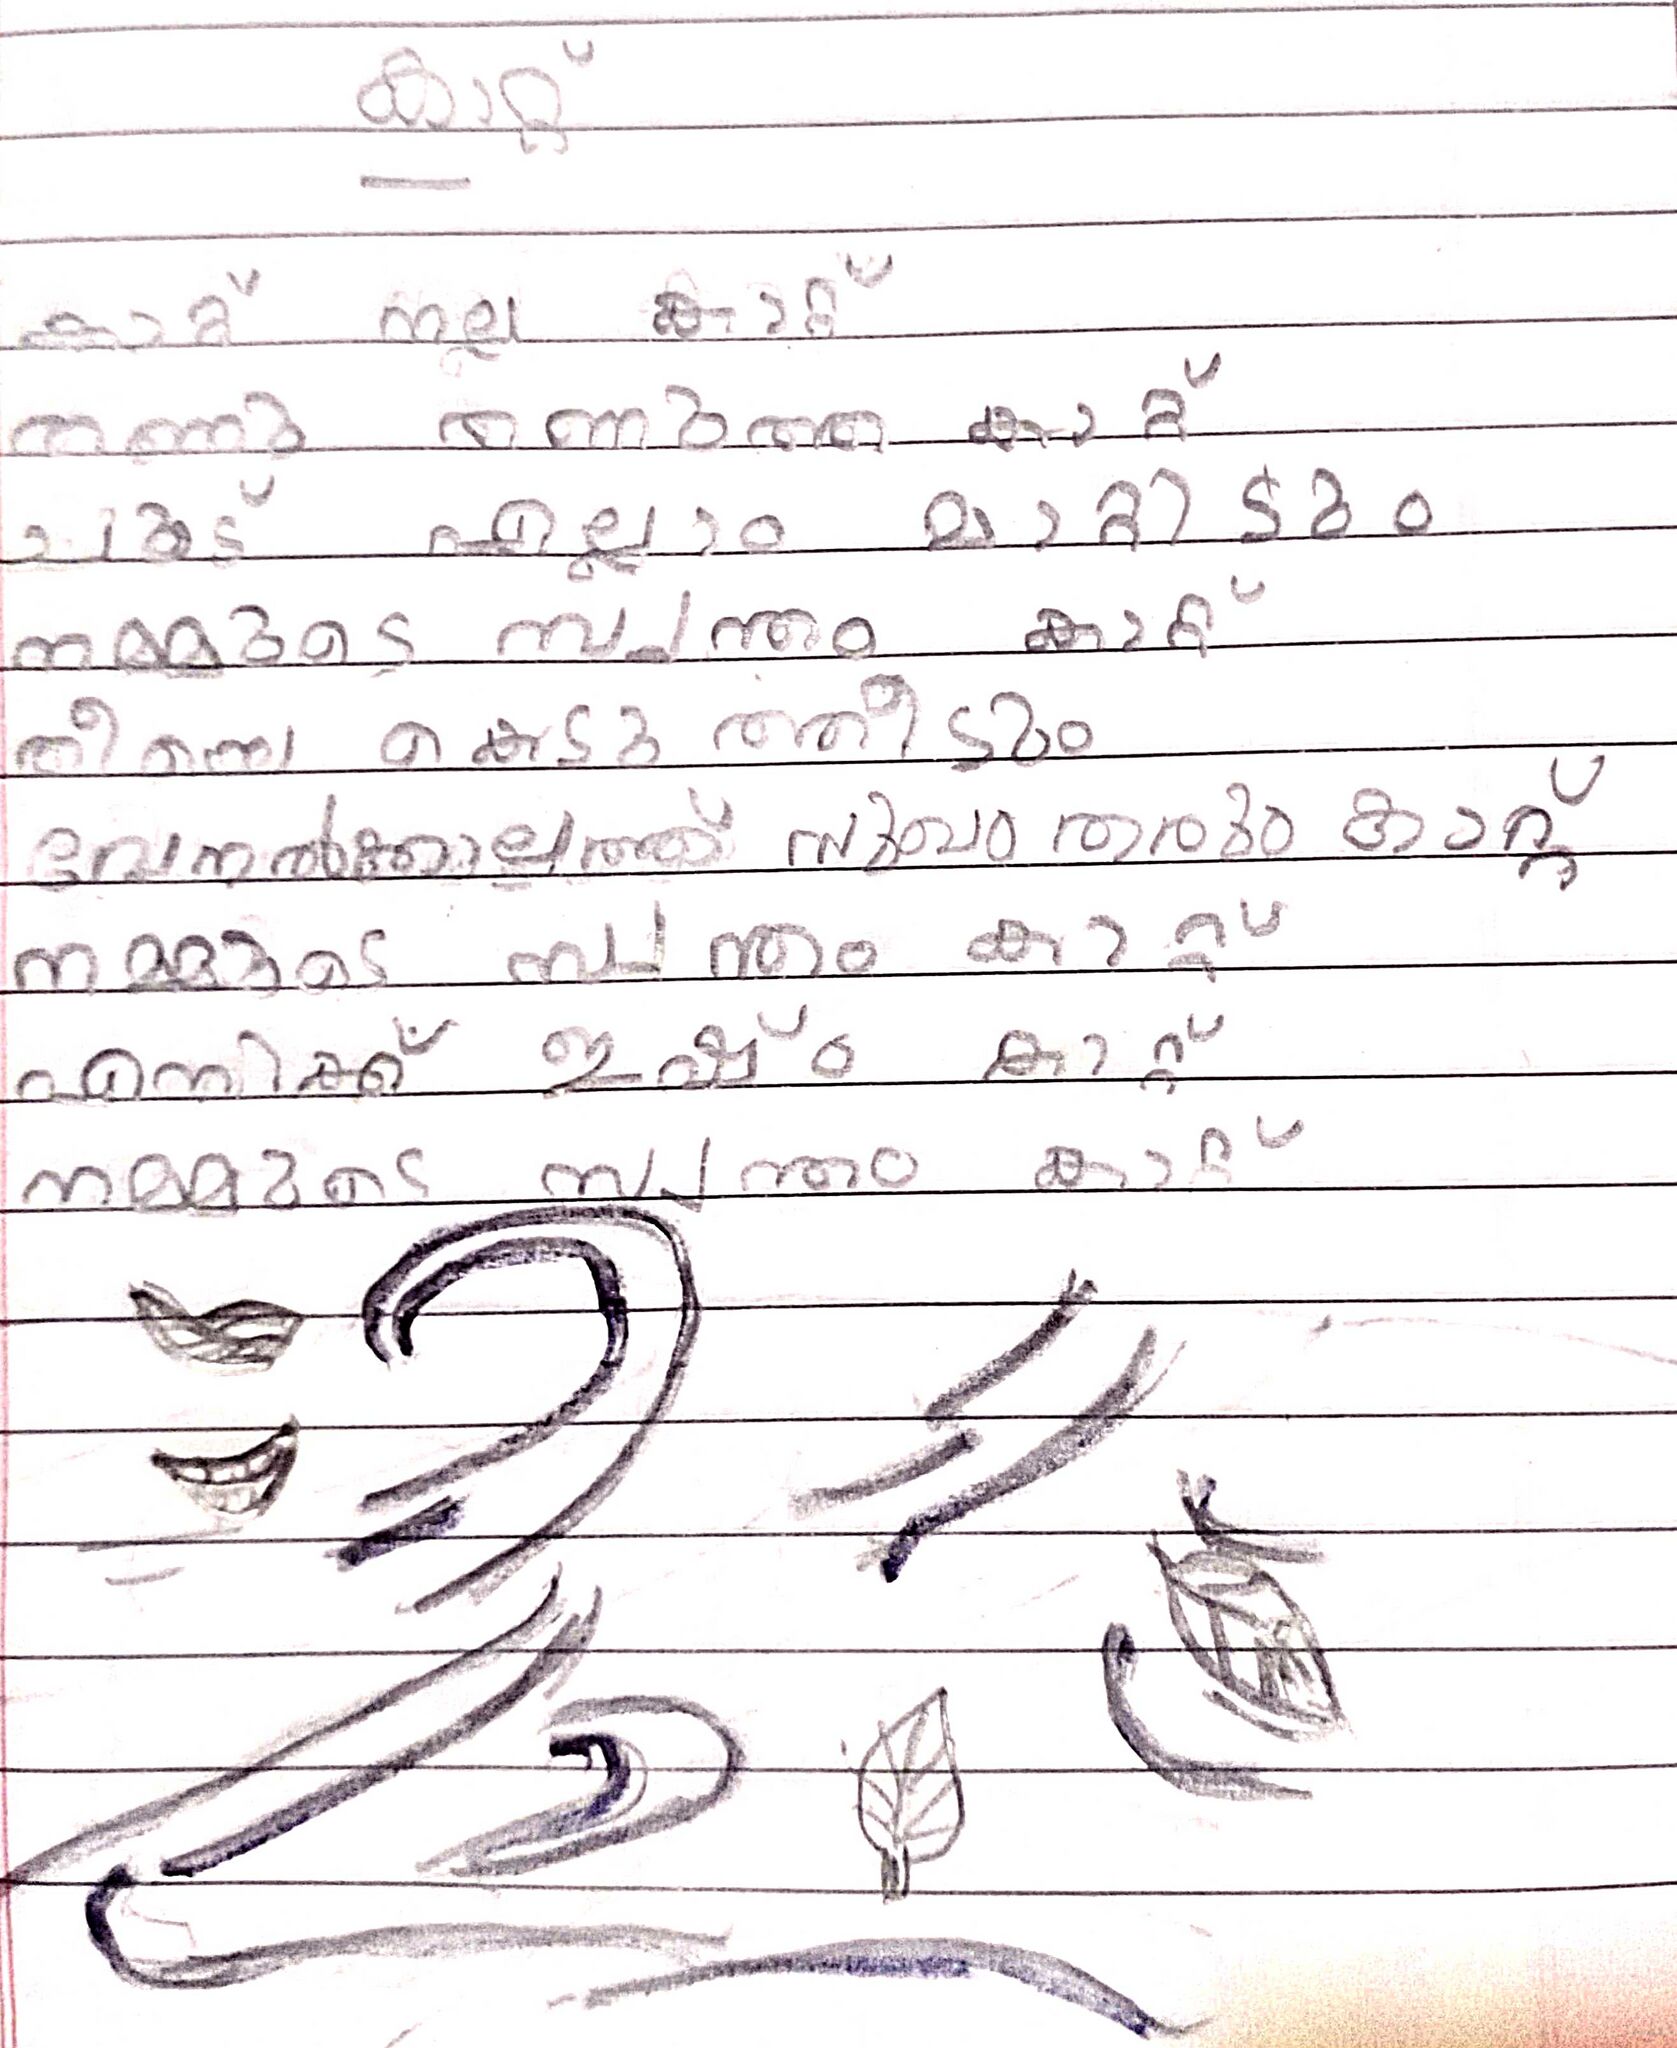 കാറ്റ്
കാറ്റ് നല്ല കാറ്റ്
തണു തണുത്ത കാറ്റ്
ചുട് എല്ലാം മാറ്റിടും
നമ്മുടെ സ്വന്തം കാറ്റ്
തീയെ കെടുത്തീടും
വേനൽക്കാലത്ത് സുഖം തരും കാറ്റ്
നമ്മുടെ സ്വന്തം കാറ്റ്
എനിക്ക് ഇഷ്ടം കാറ്റ്
നമ്മുടെ സ്വന്തം കാറ്റ്